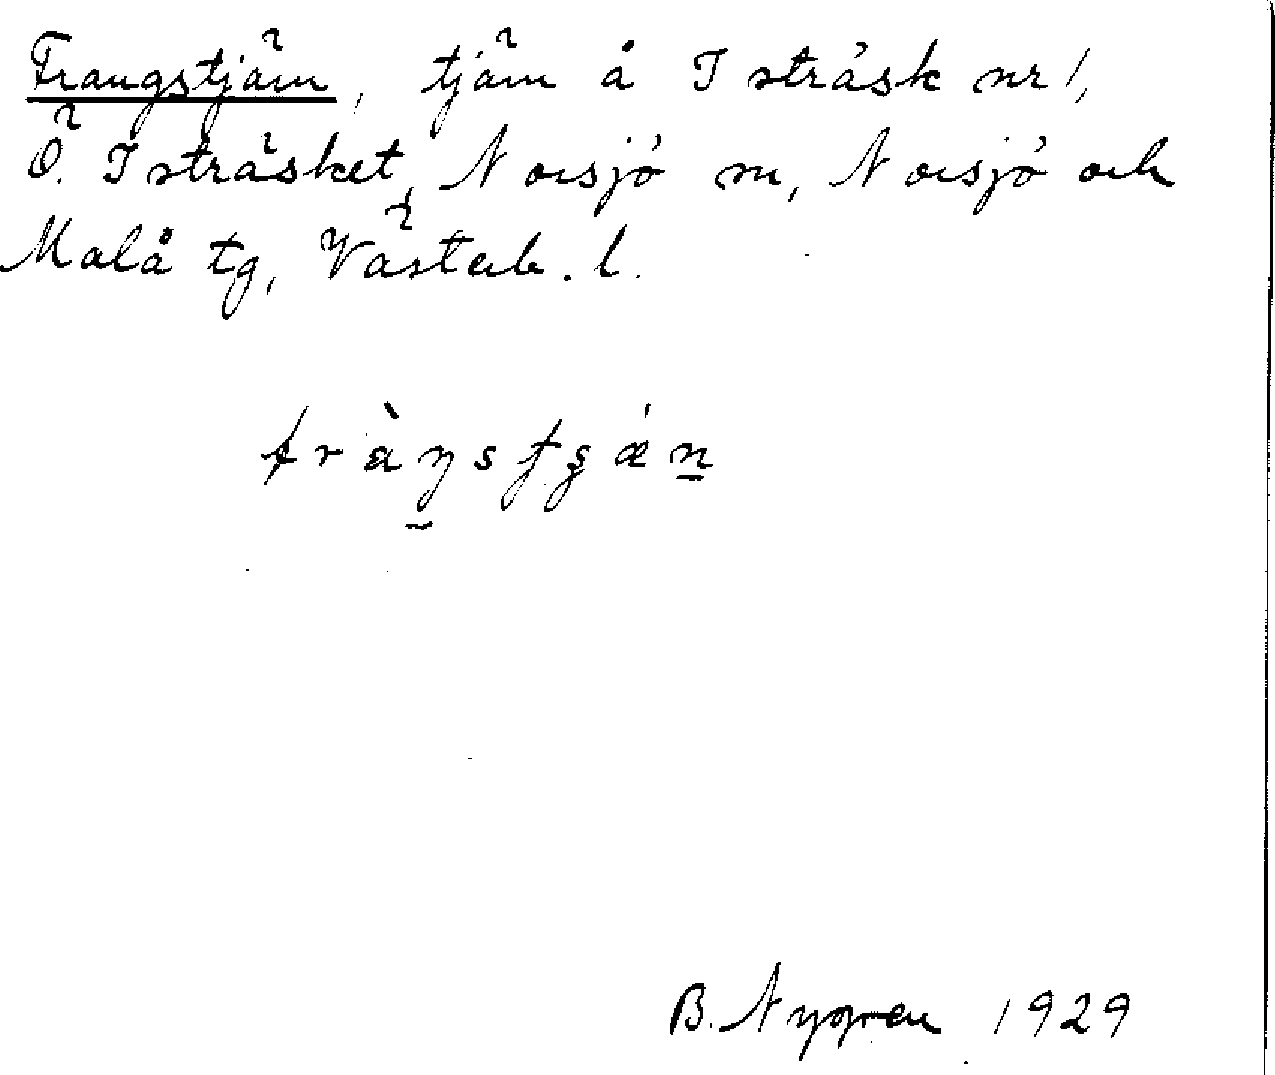 Trangstjärn, tjärn å Isträsk nr 1,
Ö. Isträsket, Norsjö sn, Norsjö och
Malå tg, Västerb. l.
tràŋstʂǽn
B. Nygren 1929